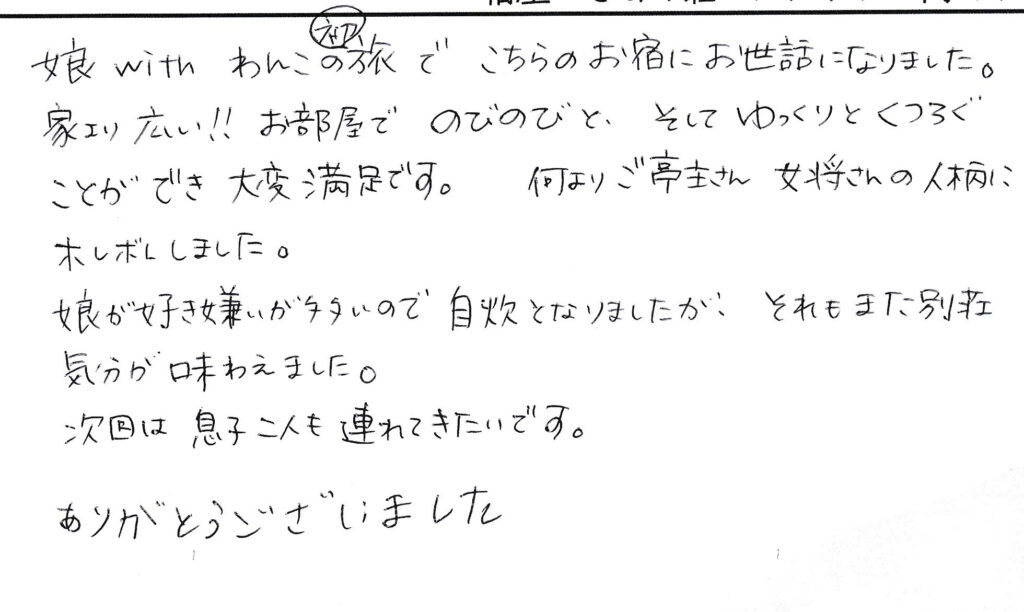 娘 with わんこの旅で こちらのお宿にお世話になりました。
家より広い!! お部屋で のびのびと、そして ゆっくりと くつろぐ
ことができ 大変満足です。 何よりご亭主さん 女将さんの人柄に
ホレボレしました。
娘が好き嫌いが多いので 自炊となりましたが、それもまた別荘
気分が味わえました。
次回は 息子二人も連れてきたいです。
ありがとうございました